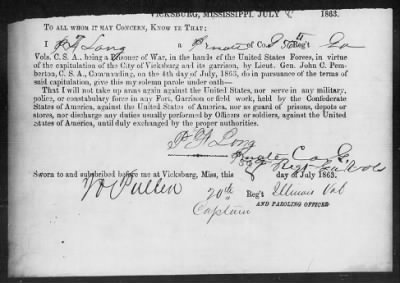 VICKSBURG, MISSISSIPPI, JULY 1863.
TO ALL WHOM IT MAY CONCERN, KNOW YE THAT;
I Long a Private of Co. 56th Reg't Ga
Vols. C. S. A., being a Prisoner of War, in the hands of the United States Forces, in virtue
of the capitulation of the City of Vicksburg and its garrison, by Lieut. Gen. John C. Pem-
berton, C. S. A., Commanding, on the 4th day of July, 1863, do in pursuance of the terms of
said capitulation, give this my solemn parole under oath—
That I will not take up arms again against the United States, nor serve in any military,
police, or constabulary force in any Fort, Garrison or field work, held by the Confederate
States of America, against the United States of America, nor as guard of prisons, depots or
stores, nor discharge any duties usually performed by Officers or soldiers, against the United
States of America, until duly exchanged by the proper authorities.
Long
Private Co
56 Regt Ga Vols
Sworn to and subscribed before me at Vicksburg, Miss., this day of July 1863.
Pullen 20th Reg't Illinois Vol
Captain AND PAROLING OFFICER